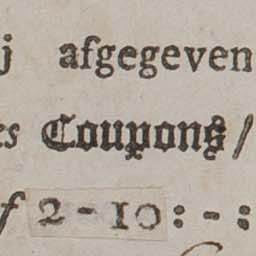 j afgegeven
es Coupons/
f 2-10:-: